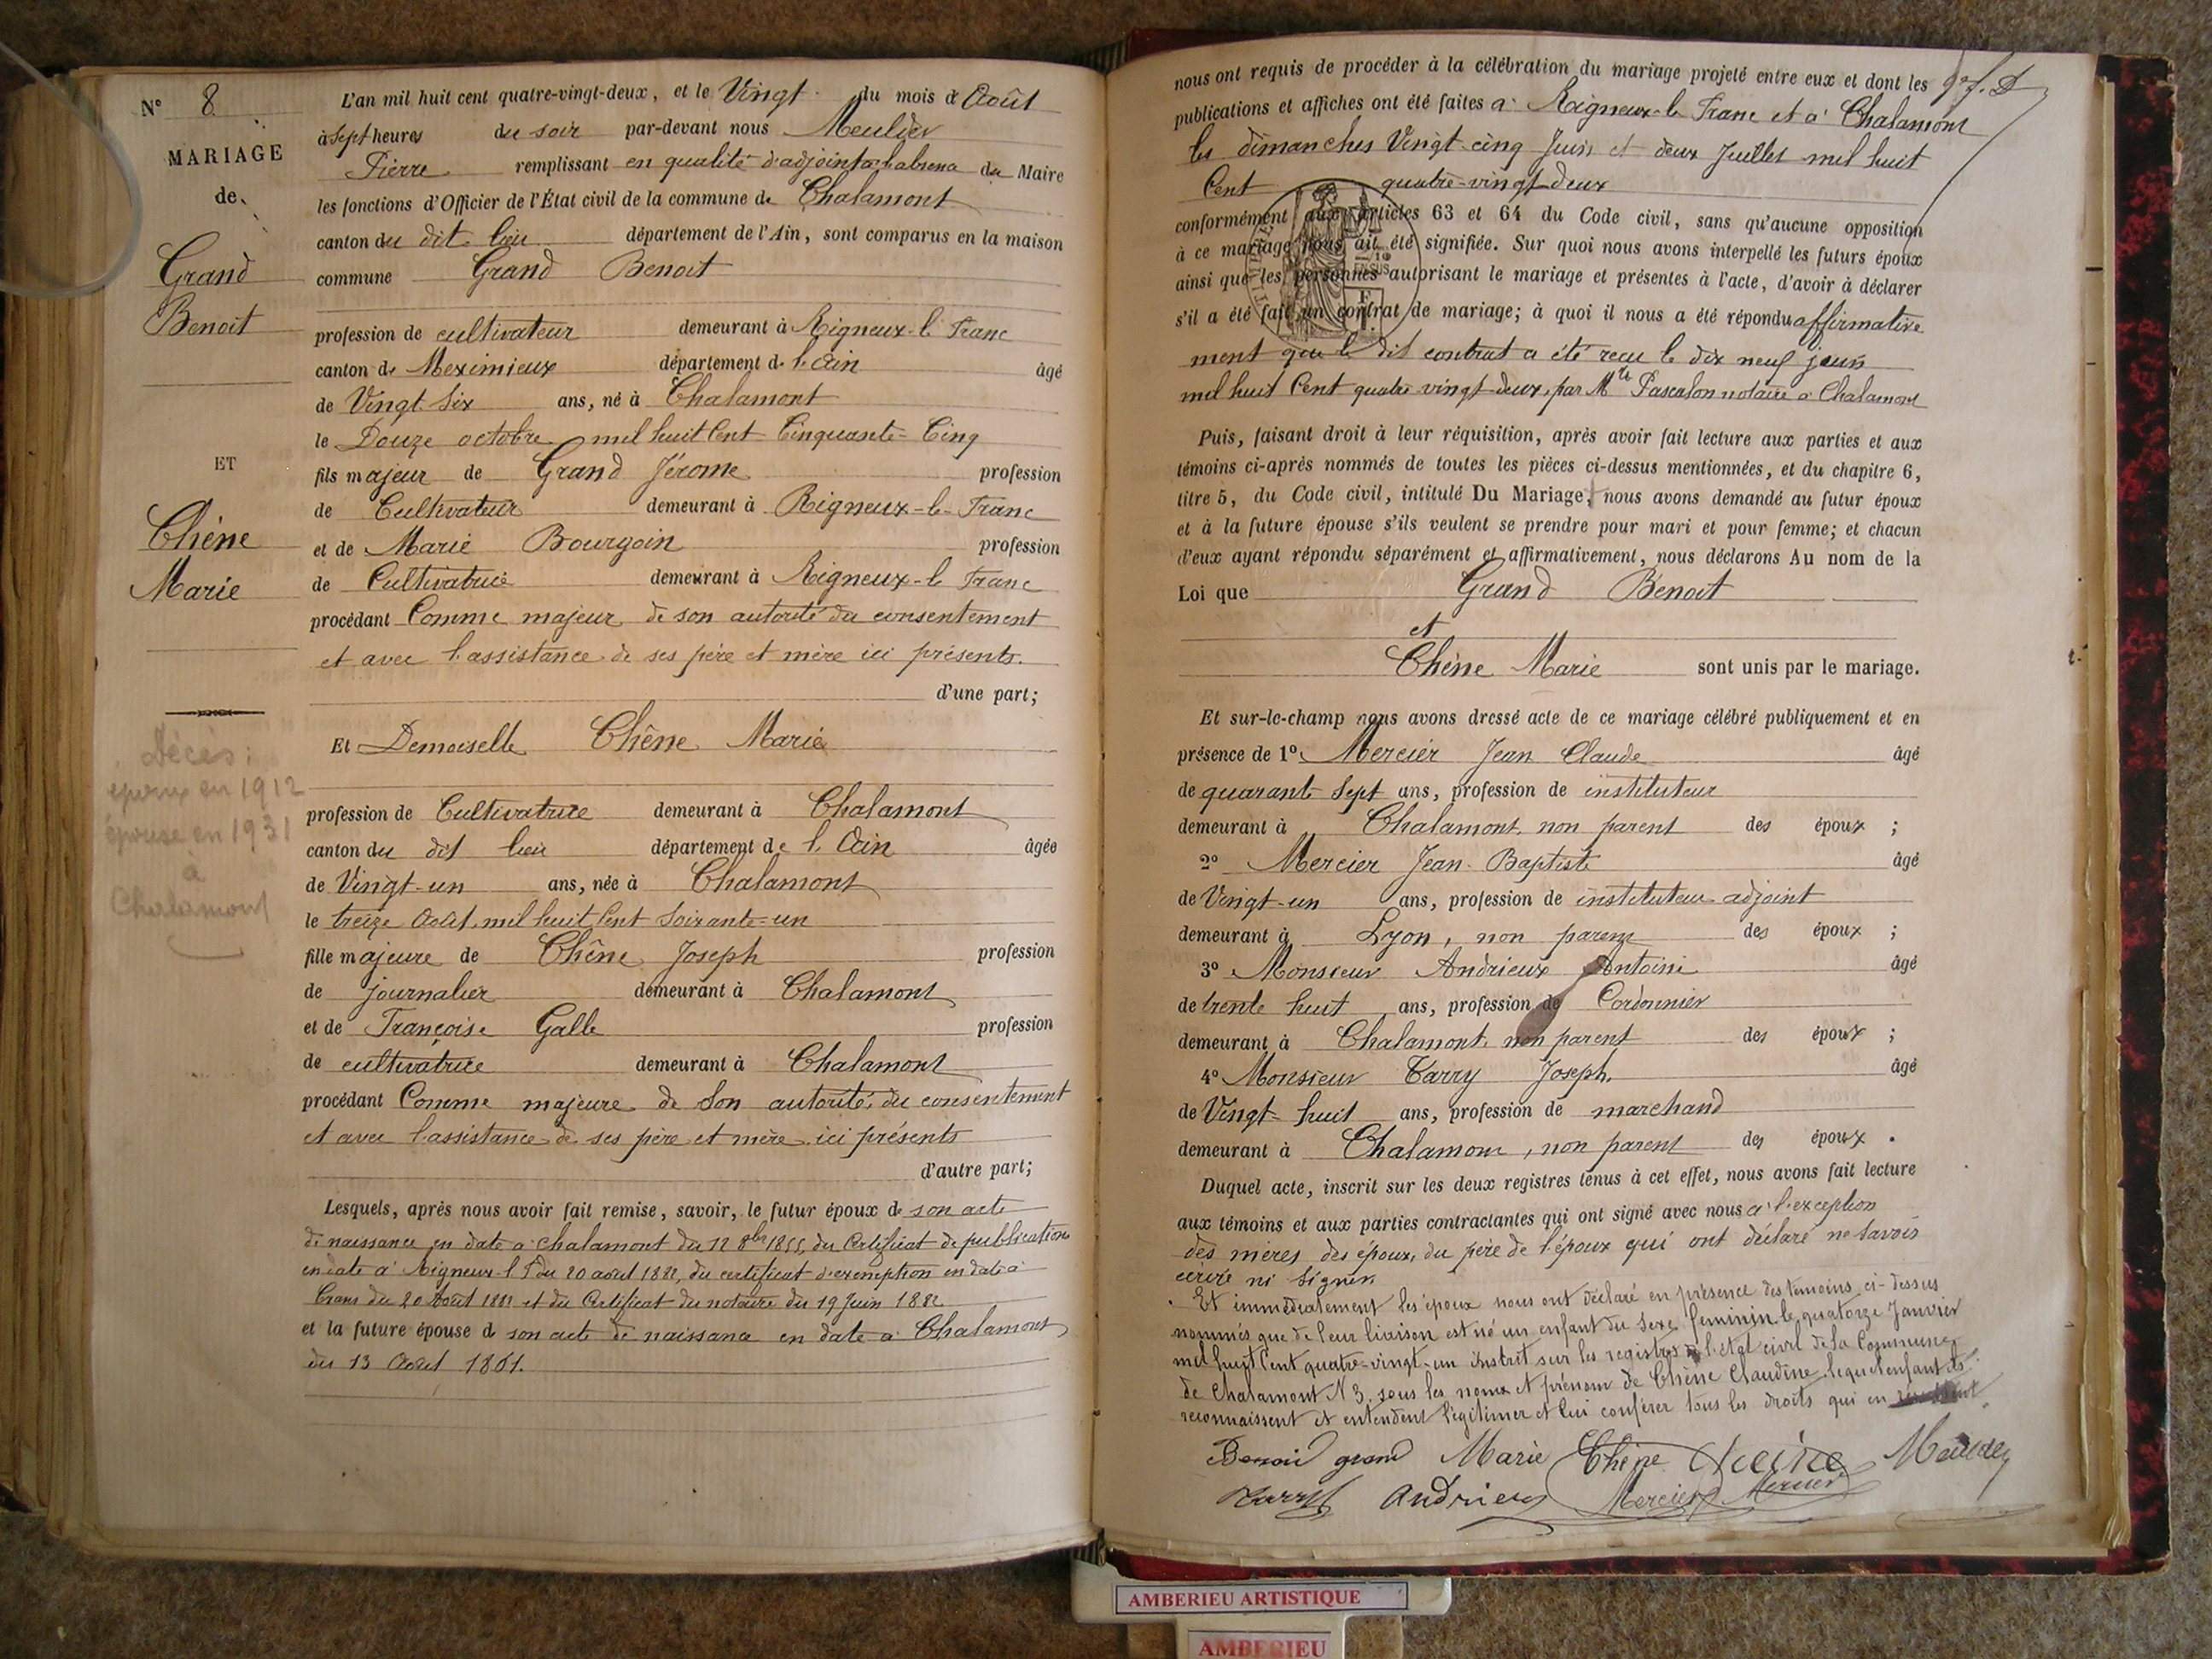 N° 8
MARIAGE
de
Grand
Benoit
ET
Chêne
Marie
Décès:
époux en 1912
épouse en 1931
à
Chalamont
L'an mil huit cent quatre-vingt-deux, et le Vingt du mois d Août
à Sept heures du soir par-devant nous Meulier
Pierre remplissant en qualité d'adjoint à l'absence du Maire
les fonctions d'Officier de l'État civil de la commune de Chalamont
canton du dit lieu département de l'Ain, sont comparus en la maison
commune Grand Benoit
profession de cultivateur demeurant à Rigneux-le Franc
canton de Meximieux département de l'Ain âgé
de Vingt Six ans, né à Chalamont
le Douze octobre mil huit Cent Cinquante-Cinq
fils majeur de Grand Jérome profession
de Cultivateur demeurant à Rigneux-le-Franc
et de Marie Bourgoin profession
de Cultivatrice demeurant à Rigneux-le Franc
procédant Comme majeur de son autorité du consentement
et avec l'assistance de ses père et mère ici présents.
d'une part;
Et Demoiselle Chêne Marie
profession de Cultivatrice demeurant à Chalamont
canton du dit lieu département de l'Ain âgée
de Vingt-un ans, née à Chalamont
le treize Août mil huit Cent Soixante-un
fille majeure de Chêne Joseph profession
de journalier demeurant à Chalamont
et de Françoise Galle profession
de cultivatrice demeurant à Chalamont
procédant Comme majeure de Son autorité, du consentement
et avec l'assistance de ses père et mère ici présents
d'autre part;
Lesquels, après nous avoir fait remise, savoir, le futur époux de son acte
de naissance en date à Chalamont du 12 8bre 1855, du Certificat de publication
en date à Rigneux-l F du 20 août 1882, du certificat d'exemption en date à
du 20 Août 1882 et du Certificat du notaire du 19 Juin 1882
et la future épouse d son acte de naissance en date à Chalamont
du 13 Août 1861.
nous ont requis de procéder à la célébration du mariage projeté entre eux et dont les
publications et affiches ont été faites à Rigneux-le Franc et à Chalamont
les dimanches Vingt-cinq Juin et deux Juillet mil huit
Cent quatre-vingt-deux
conformément aux articles 63 et 64 du Code civil, sans qu'aucune opposition
à ce mariage nous ait été signifiée. Sur quoi nous avons interpellé les futurs époux
ainsi que les personnes autorisant le mariage et présentes à l'acte, d'avoir à déclarer
s'il a été fait un contrat de mariage; à quoi il nous a été répondu affirmative
ment que le dit contrat a été reçu le dix neuf juin
mil huit Cent quatre vingt-deux, par Me Pascalon notaire à Chalamont
Puis, faisant droit à leur réquisition, après avoir fait lecture aux parties et aux
témoins ci-après nommés de toutes les pièces ci-dessus mentionnées, et du chapitre 6,
titre 5, du Code civil, intitulé Du Mariage, nous avons demandé au futur époux
et à la future épouse s'ils veulent se prendre pour mari et pour femme; et chacun
d'eux ayant répondu séparément et affirmativement, nous déclarons Au nom de la
Loi que Grand Benoit
et
Chêne Marie sont unis par le mariage.
Et sur-le-champ nous avons dressé acte de ce mariage célébré publiquement et en
présence de 1° Mercier Jean Claude âgé
de quarante Sept ans, profession de instituteur
demeurant à Chalamont, non parent des époux ;
2° Mercier Jean-Baptiste âgé
de Vingt-un ans, profession de instituteur-adjoint
demeurant à Lyon, non parent des époux ;
3° Monsieur Andrieux Antoine âgé
de trente huit ans, profession de Cordonnier
demeurant à Chalamont, non parent des époux ;
4° Monsieur Tarry Joseph. âgé
de Vingt-huit ans, profession de marchand
demeurant à Chalamont, non parent des époux .
Duquel acte, inscrit sur les deux registres tenus à cet effet, nous avons fait lecture
aux témoins et aux parties contractantes qui ont signé avec nous à l'exception
des mères des époux, du père de l'époux qui ont déclaré ne savoir
écrire ni signer.
Et immédiatement les époux nous ont déclaré en présence des témoins ci-dessus
nommés que de leur liaison est né un enfant du sexe féminin le quatorze Janvier
mil huit Cent quatre-vingt-un inscrit sur les registres de l'état civil de la Commune
de Chalamont N 3, sous les noms et prénom de Chêne Claudine, lequel enfant ils
reconnaissent et entendent légitimer et lui conférer tous les droits qui en
Benoit grand Marie Chêne Cheine Meulier
Tarry Andrieux Mercier Mercier
AMBERIEU ARTISTIQUE
AMBERIEU